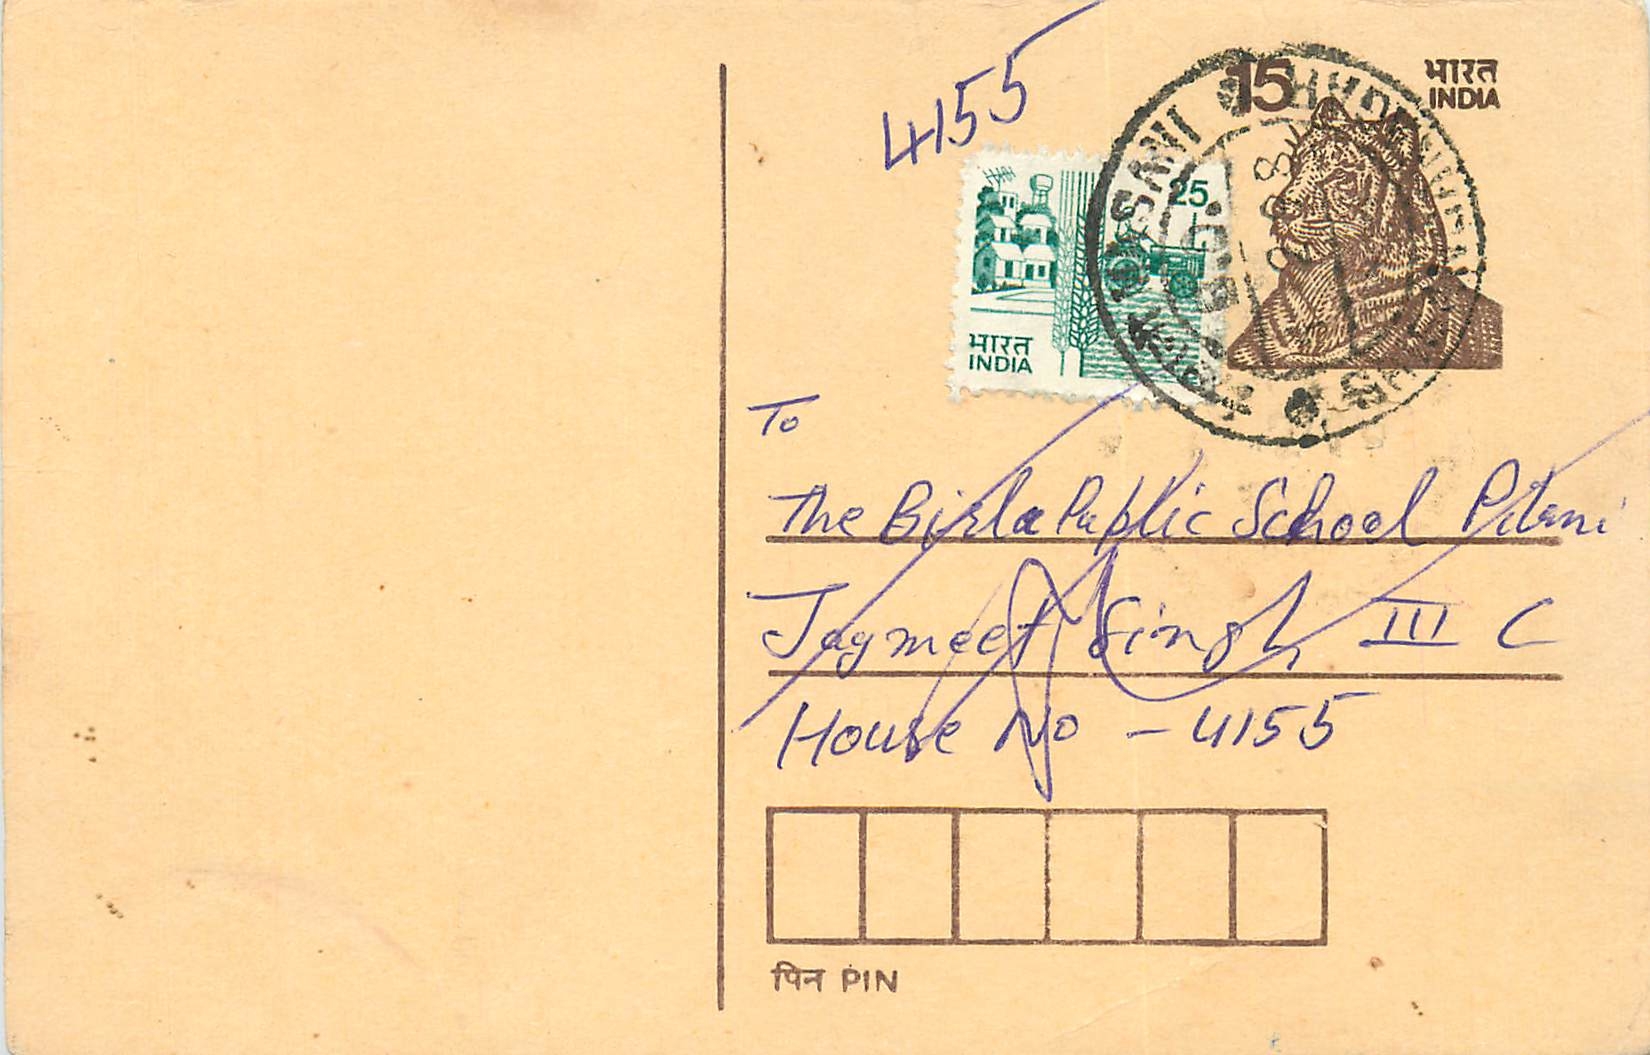 4155
15
भारत
INDIA
25
भारत
INDIA
To
The Birla Public School Pilani
Jagmeet Singh III C
House No - 4155
पिन PIN